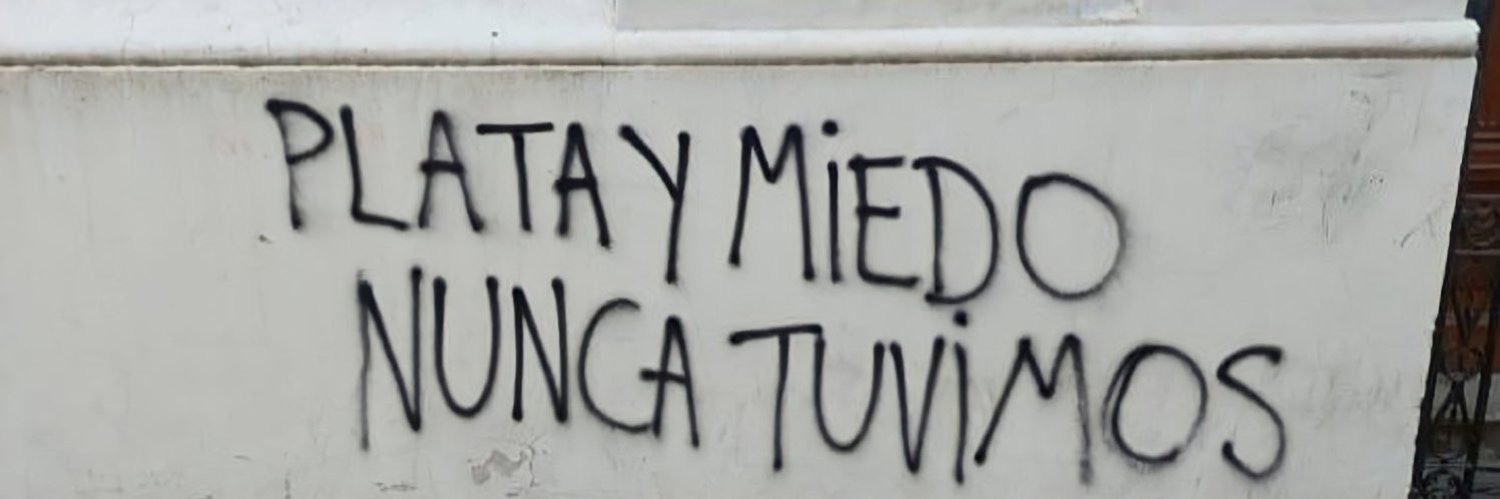 PLATA Y MiEDO
NUNCA TUViMOS